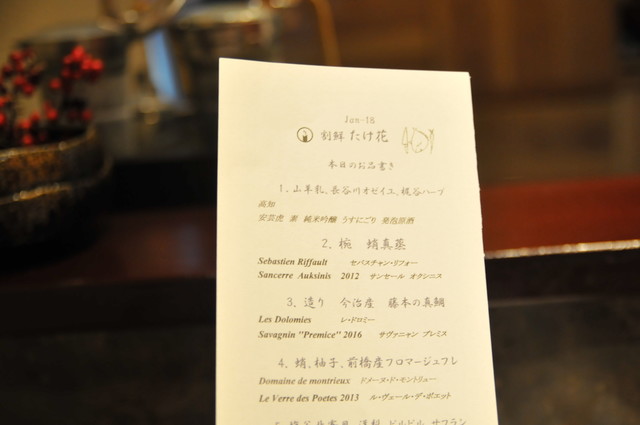 Jan-18
割鮮 たけ花
本日のお品書き
1. 山羊乳、長谷川オゼイユ、梶谷ハーブ
高知
安芸虎 素 純米吟醸 うすにごり 発泡原酒
2. 椀 蛸真薯
Sebastien Riffault セバスチャン・リフォー
Sancerre Auksinis 2012 サンセール オクシニス
3. 造り 今治産 藤本の真鯛
Les Dolomies レ・ドロミー
Savagnin "Premice" 2016 サヴァニャン プレミス
4. 蛸、柚子、前橋産フロマージュフレ
Domaine de montrieux ドメーヌ・ド・モントリュー
Le Verre des Poetes 2013 ル・ヴェール・デ・ポエット